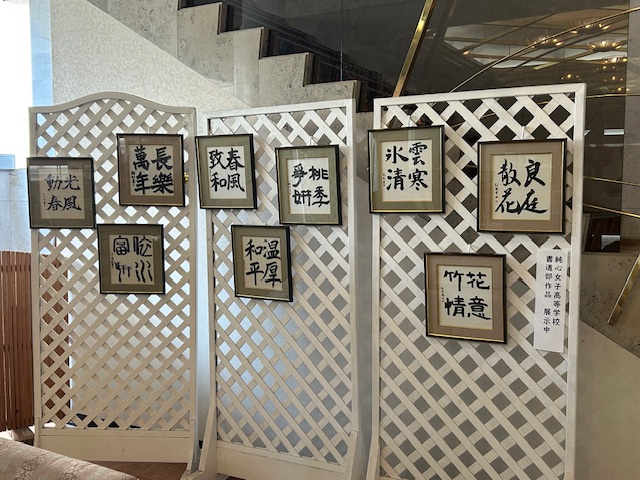 光風
動春
長樂
萬年
春風
致和
桃李
争妍
温厚
和平
雲寒
氷清
良庭
散花
花意
竹情
純心女子高等学校
書道部作品 展示中